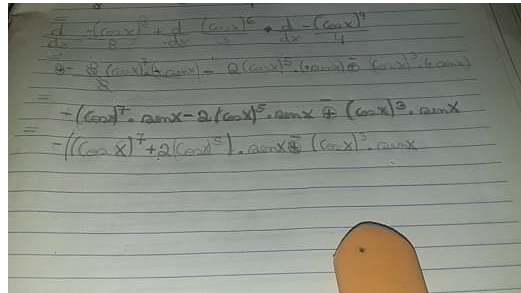 d/dx -(cosx)^8/8 + d/dx (cosx)^6/3 + d/dx -(cosx)^4/4
= - 8(cosx)^7.(-senx)/8 - 2(cosx)^5.(+senx) ⊕ (cosx)^3.(-senx)
= +(cosx)^7.senx-2(cosx)^5.senx ⊕ (cosx)^3.senx
= -((cosx)^7+2(cosx)^5).senx ⊕ (cosx)^3.senx